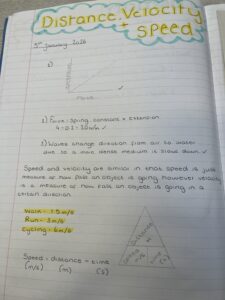 Distance, Velocity
+ Speed
5th January 2026
1)
Extension
Force
2) Force = Spring constant × Extension
3) Waves change direction from air to water
due to a more dense medium is slows down
Speed and velocity are similar in that speed is just
measure of how fast an object is going however velocity
is a measure of how fast an object is going in a
certain direction.
Walk = 1.5 m/s
Run = 3 m/s
Cycling = 6 m/s
Distance
m
Speed
m/s
Time
(s)
Speed = distance ÷ time
(m/s) (m) (s)